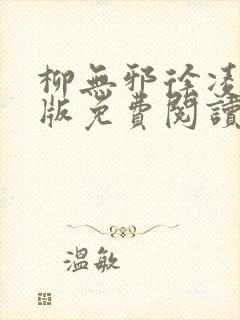 柳無邪徐凌
版免費閱讀
溫敏